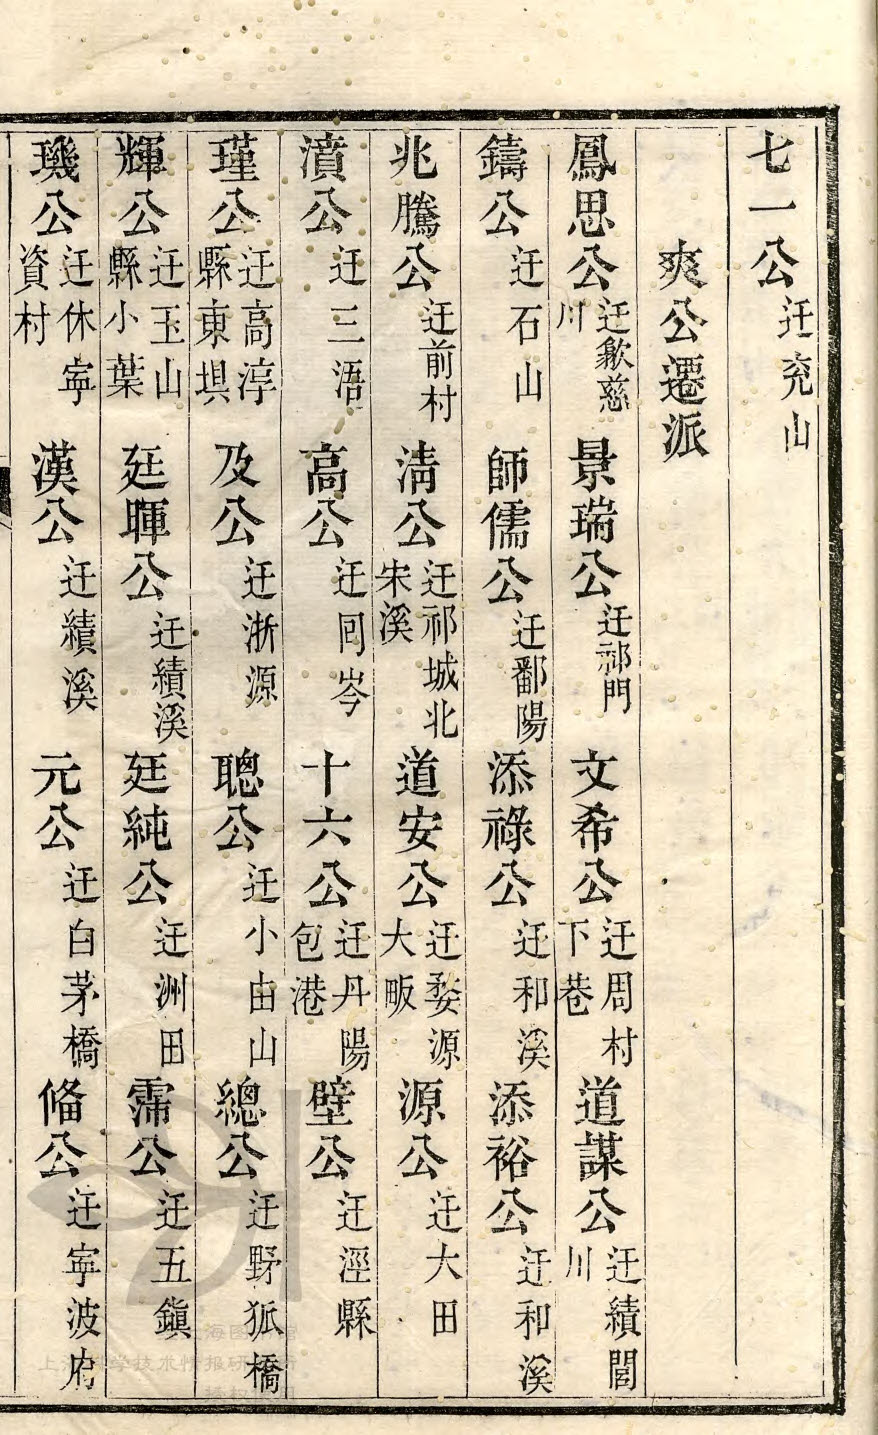 七一公 迁兖山
爽公遷派
鳳思公 迁歙慈川 景瑞公 迁祁門 文希公 迁周村下巷 道謀公 迁績閏川
鑄公 迁石山 師儒公 迁鄱陽 添祿公 迁和溪 添裕公 迁和溪
兆騰公 迁前村 清公 迁祁城北宋溪 道安公 迁婺源大畈 源公 迁大田
濆公 迁三浯 高公 迁囘岑 十六公 迁丹陽包港 壁公 迁涇縣
瑾公 迁高淳縣東垻 及公 迁浙源 聰公 迁小由山 總公 迁野狐橋
輝公 迁玉山縣小葉 廷暉公 迁績溪 廷純公 迁洲田 霈公 迁五鎭
璣公 迁休寧資村 漢公 迁績溪 元公 迁白茅橋 俻公 迁寧波府